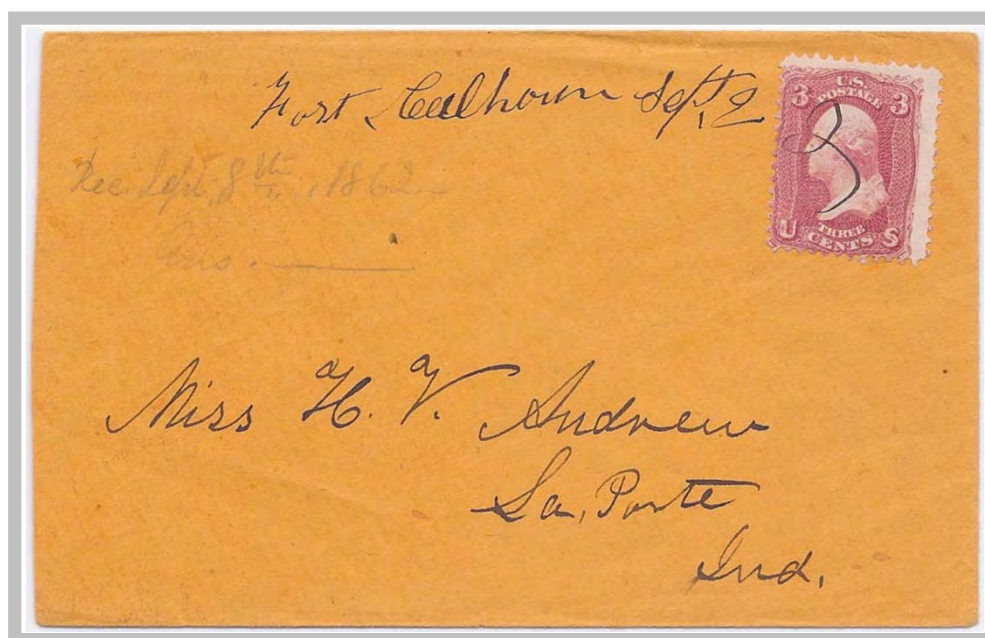 Fort Calhoun Sept. 2
3 U.S. POSTAGE 3
U THREE CENTS S
Rec. Sept. 8th, 1862
Ans.
Miss H. V. Andrew
La Porte
Ind.